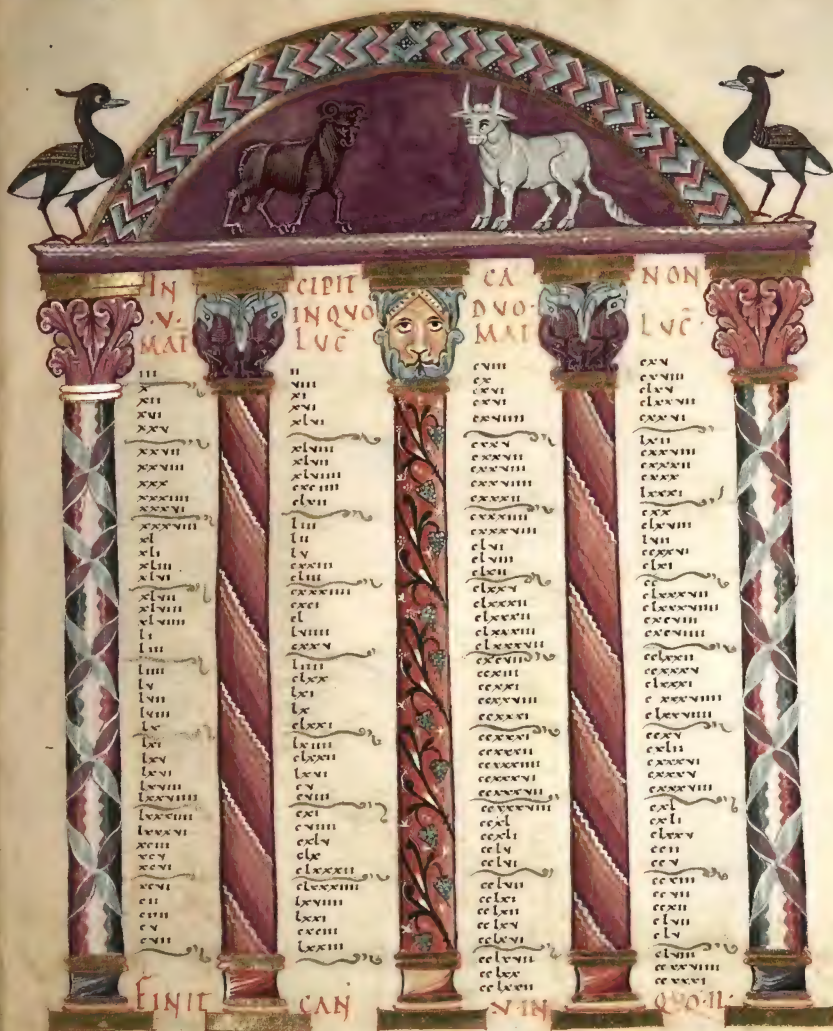 IN CIPIT CA NON
·V· INQVO DVO·
MAT̄ LVC̄ MAT̄ LVC̄·
iii
x
xii
xvi
xxv
xxvii
xxviii
xxx
xxxiiii
xxxvi
xxxviii
xl
xli
xliii
xlvi
xlvii
xlviii
xlviiii
li
liii
liiii
lv
lvii
lviii
lx
lxi
lxv
lxvi
lxviii
lxxviiii
lxxxiiii
lxxxvi
xciii
xcv
xcvi
xcvi
cii
ciiii
cv
cvii
ii
viii
xi
xvi
xlvi
xlviii
xlvii
xlviiii
cxciiii
clxii
liii
lii
lv
cxxiii
cliii
cxxxiiii
cxci
cl
lviiii
cxxv
liiii
clxx
lxi
lx
clxxi
lxiiii
clxxii
lxvi
cv
cviii
cxi
cviiii
cxlv
clx
clxxxii
clxxxiiii
lxviiii
lxxi
cxciii
lxxiii
cviii
cx
cxvi
cxviiii
cxxv
cxxvii
cxxviii
cxxviiii
cxxxii
cxxxiiii
cxxxviii
clvi
clviii
clxii
clxxv
clxxxii
clxxxiii
clxxxvii
cxcvii
ccxiii
ccxxi
ccxxviii
ccxxxi
ccxxxi
ccxxxii
ccxxxiiii
ccxxxvi
ccxxxvii
ccxxxviii
ccxl
ccxli
cclv
cclvi
cclvii
cclxi
cclxii
cclxv
cclxvi
cclxvii
cclxx
cclxxii
cxv
cxviii
clxv
clxxvii
cxxvi
lxii
cxxviii
cxxxii
cxxx
lxxxi
cxx
clxviii
lvii
ccxxvi
clxi
cc
clxxxvii
clxxxviiii
cxcviii
cxcviiii
cclxxii
clxxxi
c xxxviiii
clxxviiii
ccxv
cxlii
cxxxvi
cxxxv
cxxxviii
cxl
cxli
clxxv
ccii
ccv
ccxiii
ccvii
ccxii
clvii
clv
clviii
ccxxviii
ccxxxi
FINIT CAN̄ ·V·IN QVO·II·